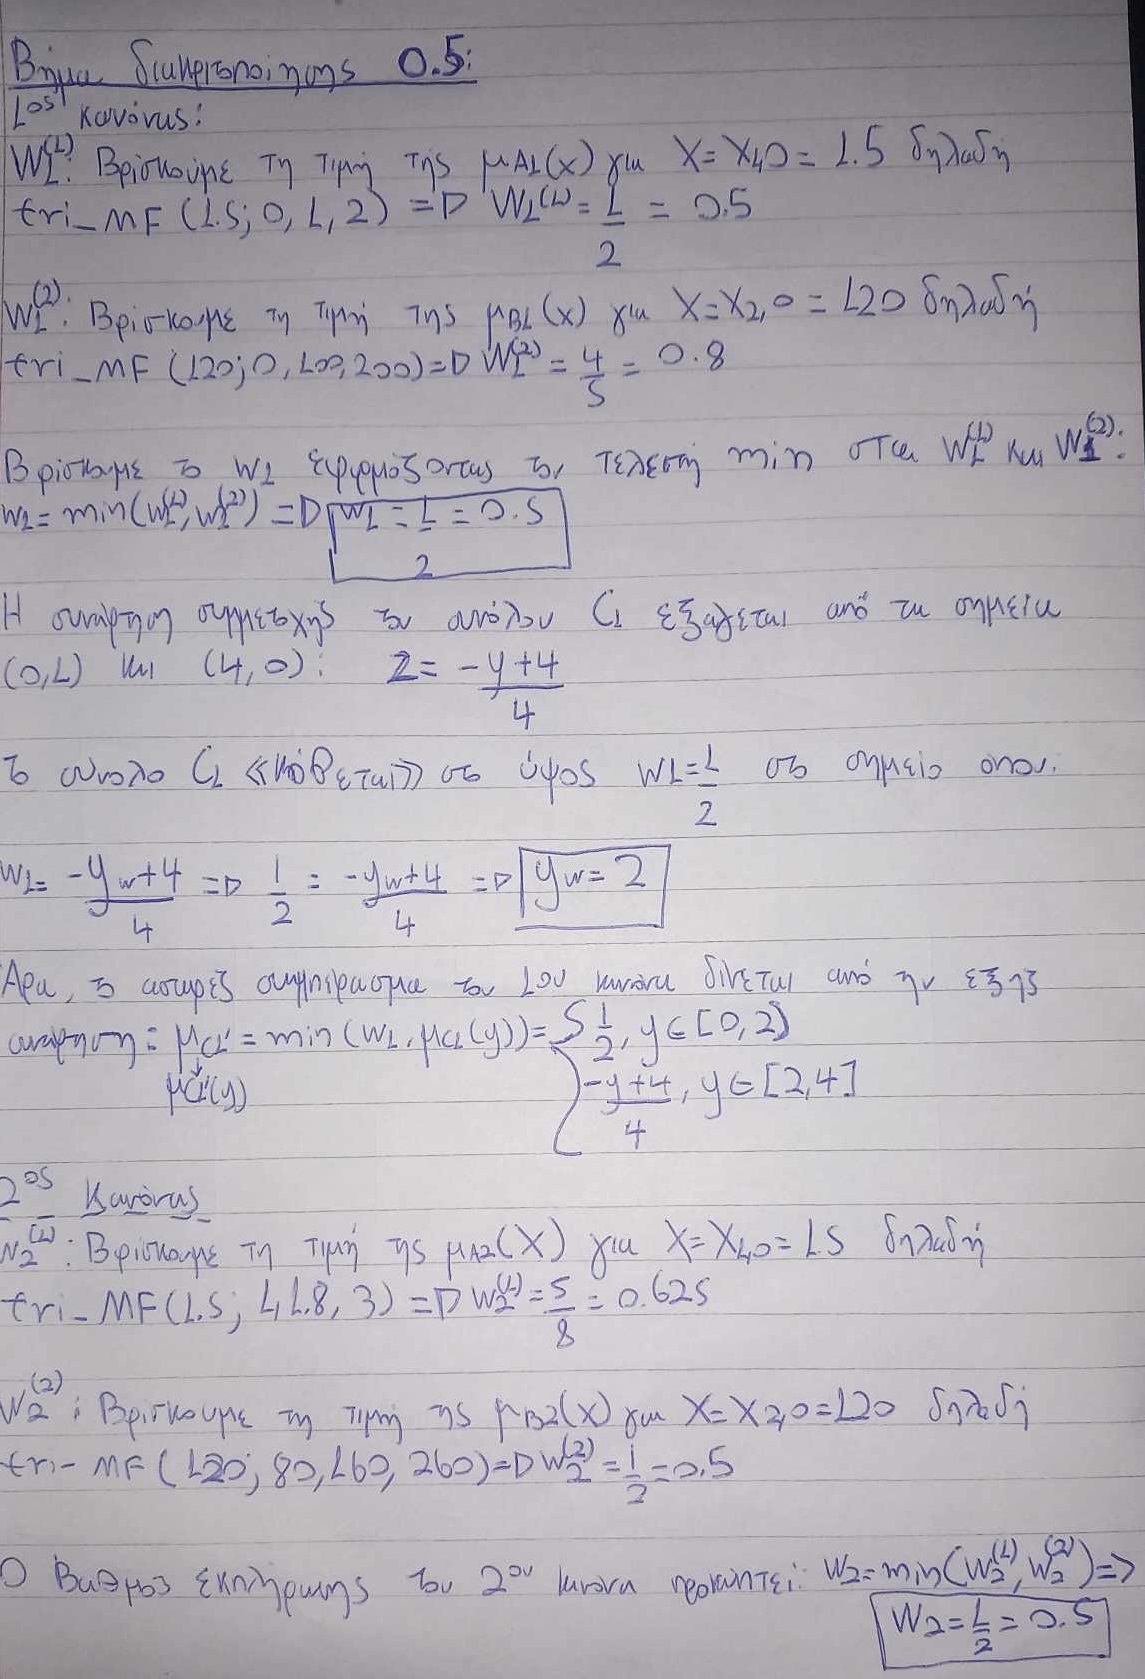 Βήμα διακριτοποίησης 0.5:
1ος κανόνας:
W1^(1): Βρίσκουμε τη τιμή της μA1(x) για X=X1,0=1.5 δηλαδή
tri_MF (1.5; 0, 1, 2) => W1^(1) = 1/2 = 0.5
W1^(2): Βρίσκουμε τη τιμή της μB1(x) για X=X2,0=120 δηλαδή
tri_MF (120; 0, 100, 200) => W1^(2) = 4/5 = 0.8
Βρίσκουμε το W1 εφαρμόζοντας τον τελεστή min στα W1^(1) και W1^(2):
W1 = min(W1^(1), W1^(2)) => W1 = 1/2 = 0.5
Η συνάρτηση συμμετοχής του συνόλου C1 εξάγεται από τα σημεία
(0,1) και (4,0): Z = -y+4/4
Το σύνολο C1 «κόβεται» στο ύψος W1=1/2 στο σημείο όπου:
W1 = -yw+4/4 => 1/2 = -yw+4/4 => yw = 2
Άρα, το ασαφές συμπέρασμα του 1ου κανόνα δίνεται από την εξής
συνάρτηση: μC1' = min (W1, μC1(y)) = { 1/2, y∈[0,2)
μC1'(y) -y+4/4, y∈[2,4]
2ος Κανόνας
W2^(1): Βρίσκουμε τη τιμή της μA2(X) για X=X1,0=1.5 δηλαδή
tri_MF(1.5; 1, 1.8, 3) => W2^(1) = 5/8 = 0.625
W2^(2): Βρίσκουμε τη τιμή της μB2(x) για X=X2,0=120 δηλαδή
tri_MF (120; 80, 160, 260) => W2^(2) = 1/2 = 0.5
Ο Βαθμός εκπλήρωσης του 2ου κανόνα προκύπτει: W2=min(W2^(1), W2^(2)) =>
W2 = 1/2 = 0.5